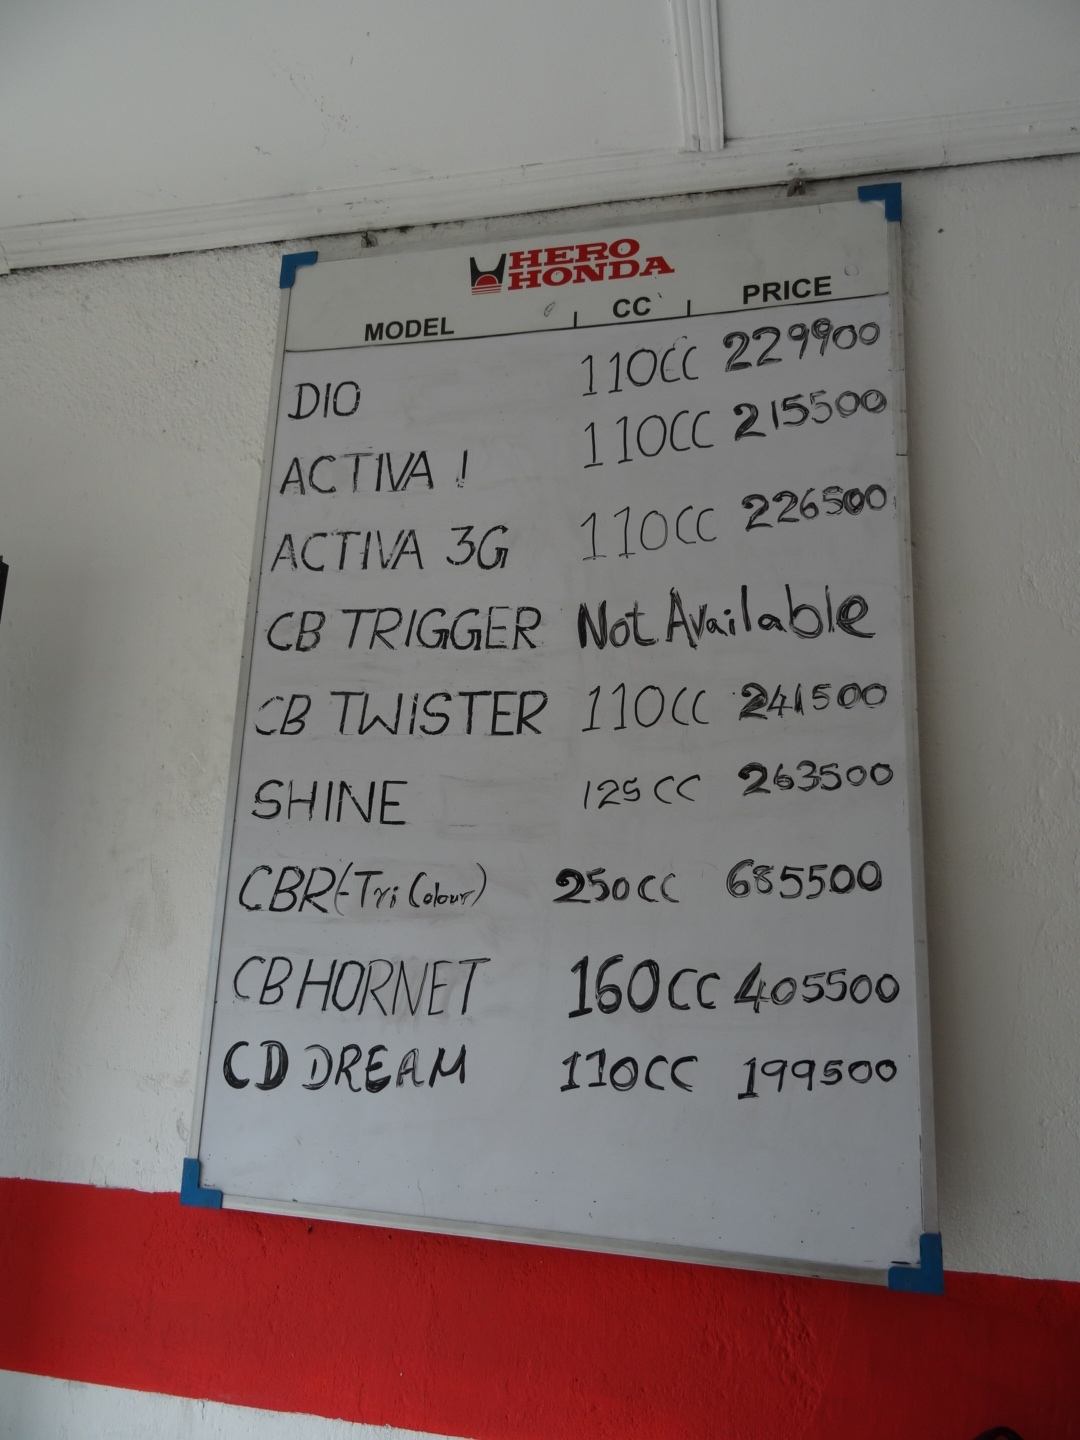 HERO
HONDA
MODEL CC PRICE
DIO 110CC 229900
ACTIVA I 110CC 215500
ACTIVA 3G 110CC 226500
CB TRIGGER Not Available
CB TWISTER 110CC 241500
SHINE 125CC 263500
CBR (Tri Colour) 250CC 685500
CB HORNET 160CC 405500
CD DREAM 110CC 199500